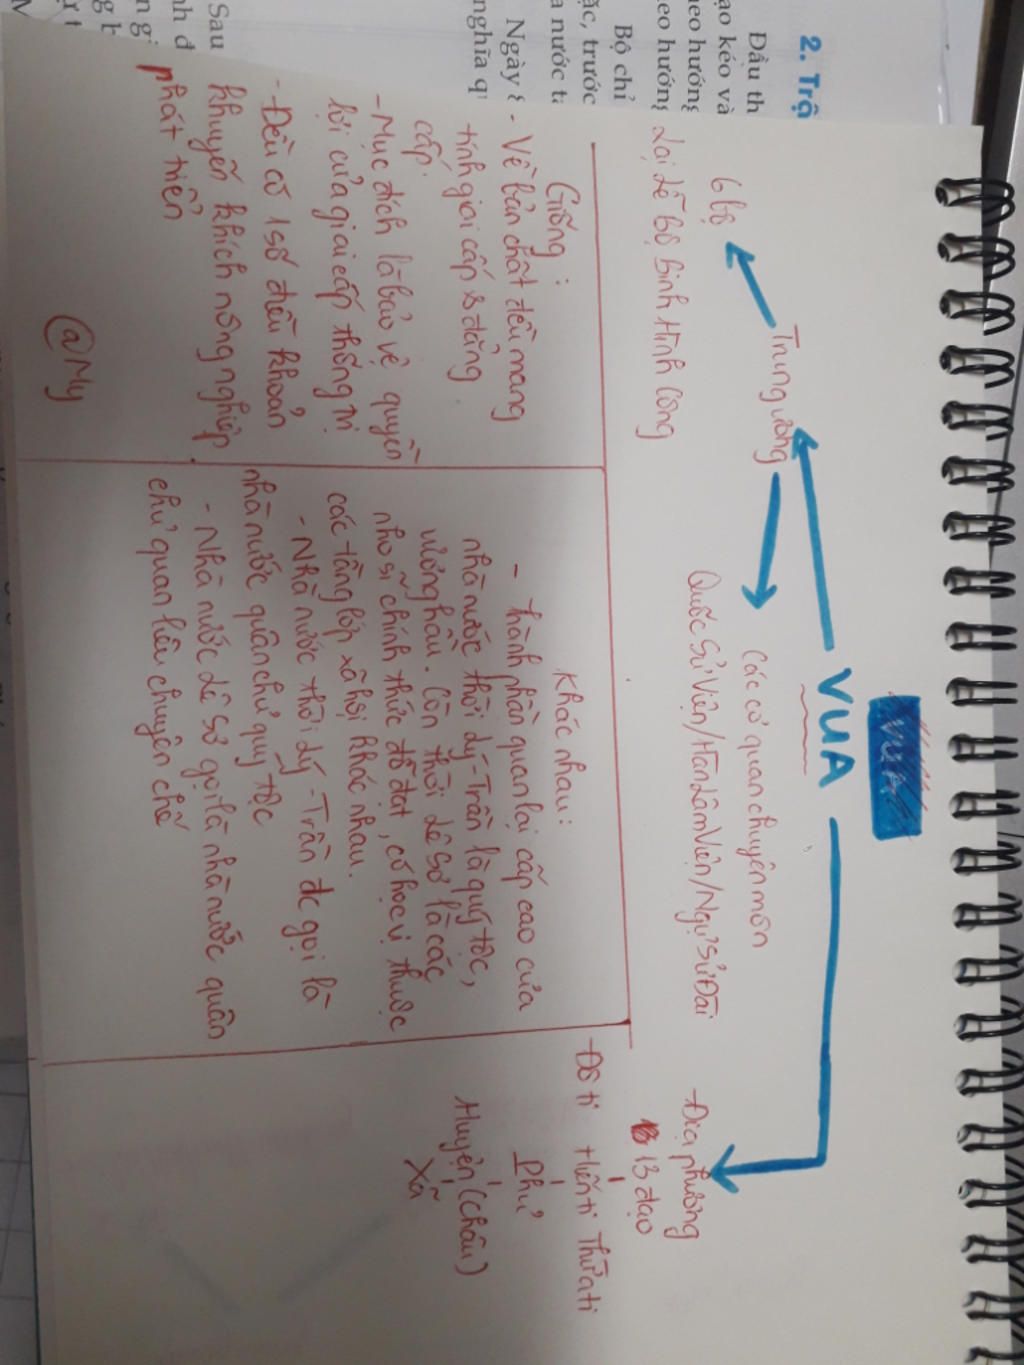 VUA
VUA
Trung ương
6 bộ
Lại Lễ Bộ Binh Hình Công
Các cơ quan chuyên môn
Quốc Sử Viện/Hàn Lâm Viện/Ngự Sử Đài
-Địa phương
13 đạo
-Đô ti Hiến ti Thừa ti
Phủ
Huyện (Châu)
Xã
Giống :
- Về bản chất đều mang
tính giai cấp & đẳng
cấp.
-Mục đích là bảo vệ quyền
lợi của giai cấp thống trị
-Đều có 1 số điều khoản
khuyến khích nông nghiệp
phát triển
@My
Khác nhau:
- thành phần quan lại cấp cao của
nhà nước thời Lý-Trần là quý tộc,
vương hầu. Còn thời Lê Sơ là các
nho sĩ chính thức đỗ đạt, có học vị thuộc
các tầng lớp xã hội khác nhau.
- Nhà nước thời Lý - Trần đc gọi là
nhà nước quân chủ quý tộc
- Nhà nước Lê Sơ gọi là nhà nước quân
chủ quan liêu chuyên chế
2. Trậ
Đầu th
ạo kéo và
heo hướng
eo hướng
Bộ chỉ
ặc, trước
a nước ta
Ngày 8
nghĩa q
Sau